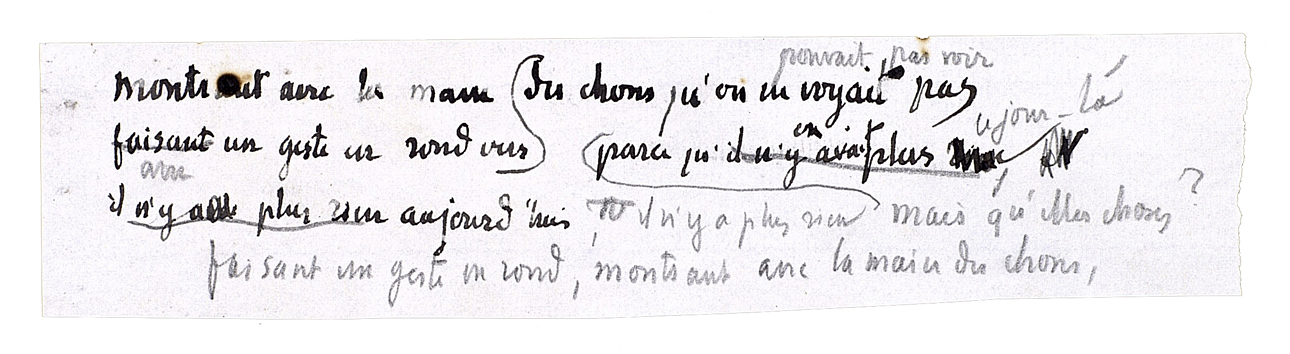 pouvait pas voir
montrant avec la main des choses qu'on ne voyait pas
ce jour-là
faisant un geste en rond vers parce qu'il n'y en avait plus
avec
il n'y a plus rien aujourd'hui il n'y a plus rien mais qu'elles choses ?
faisant un geste en rond, montrant avec la main des choses,